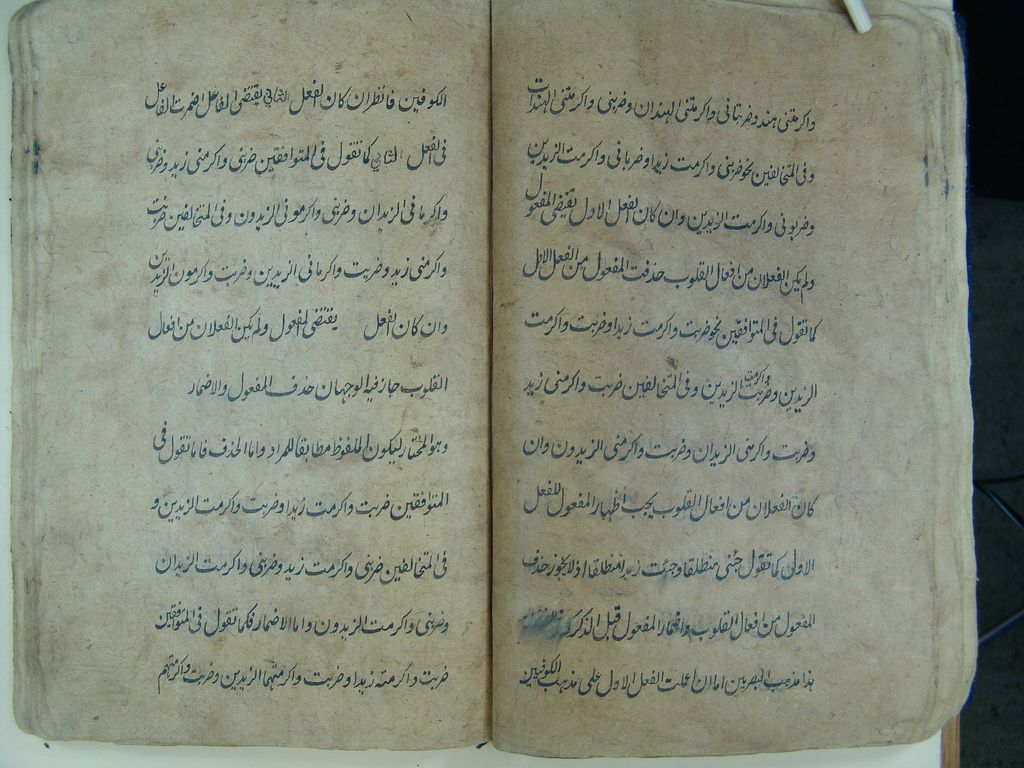 واكرمتنى هند وضربتانى واكرمتنى الهندان وضربنى واكرمتنى الهندات
وفى المتخالفين نحو ضربنى واكرمت زيدا وضربانى واكرمت الزيدين
وضربونى واكرمت الزيدين وان كان الفعل الاول يقتضى المفعول
ولم يكن الفعلان من افعال القلوب حذفت المفعول من الفعل الاول
كما تقول فى المتوافقين نحو ضربت واكرمت زيدا وضربت واكرمت
الزيدين وضربت واكرمت الزيدين وفى المتخالفين ضربت واكرمنى زيد
وضربت واكرمنى الزيدان وضربت واكرمنى الزيدون وان
كان الفعلان من افعال القلوب يجب اظهار المفعول للفعل
الاول كما تقول حسبنى منطلقا وحسبت زيدا منطلقا اذ لا يجوز حذف
المفعول من افعال القلوب واضمار المفعول قبل الذكر
هذا مذهب البصريين اما ان اعملت الفعل الاول على مذهب الكوفيين
الكوفيين فانظر ان كان الفعل الثانى يقتضى الفاعل اضمرت الفاعل
فى الفعل الثانى كما تقول فى المتوافقين ضربنى واكرمنى زيد وضربنى
واكرمانى الزيدان وضربنى واكرمونى الزيدون وفى المتخالفين ضربت
واكرمنى زيد وضربت واكرمانى الزيدين وضربت واكرمون الزيدين
وان كان الفعل يقتضى المفعول ولم يكن الفعلان من افعال
القلوب جاز فيه الوجهان حذف المفعول والاضمار
وهو المختار ليكون الملفوظ مطابقا للمراد واما الحذف فاما تقول فى
المتوافقين ضربت واكرمت زيدا وضربت واكرمت الزيدين و
فى المتخالفين ضربنى واكرمت زيد وضربنى واكرمت الزيدان
وضربنى واكرمت الزيدون واما الاضمار فكما تقول فى المتوافقين
ضربت واكرمته زيدا وضربت واكرمتهما الزيدين وضربت واكرمتهم